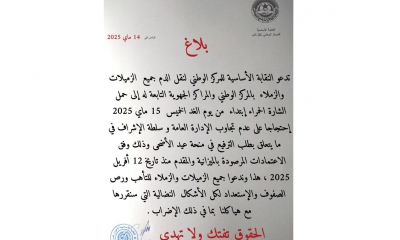 14 ماي 2025
بلاغ
تدعو النقابة الأساسية للمركز الوطني لنقل الدم جميع الزميلات
والزملاء بالمركز الوطني والمراكز الجهوية التابعة له إلى حمل
الشارة الحمراء إبتداء من يوم الغد الخميس 15 ماي 2025
إحتجاجا على عدم تجاوب الإدارة العامة و سلطة الإشراف في
ما يتعلق بطلب الترفيع في منحة عيد الأضحى وذلك وفق
الاعتمادات المرصودة بالميزانية والمقدم منذ تاريخ 12 أفريل
2025 ، هذا وندعوا جميع الزميلات والزملاء للتأهب ورص
الصفوف والإستعداد لكل الأشكال النضالية التي سنقررها
مع هياكلنا بما في ذلك الإضراب .
الحقوق تفتك ولا تهدى